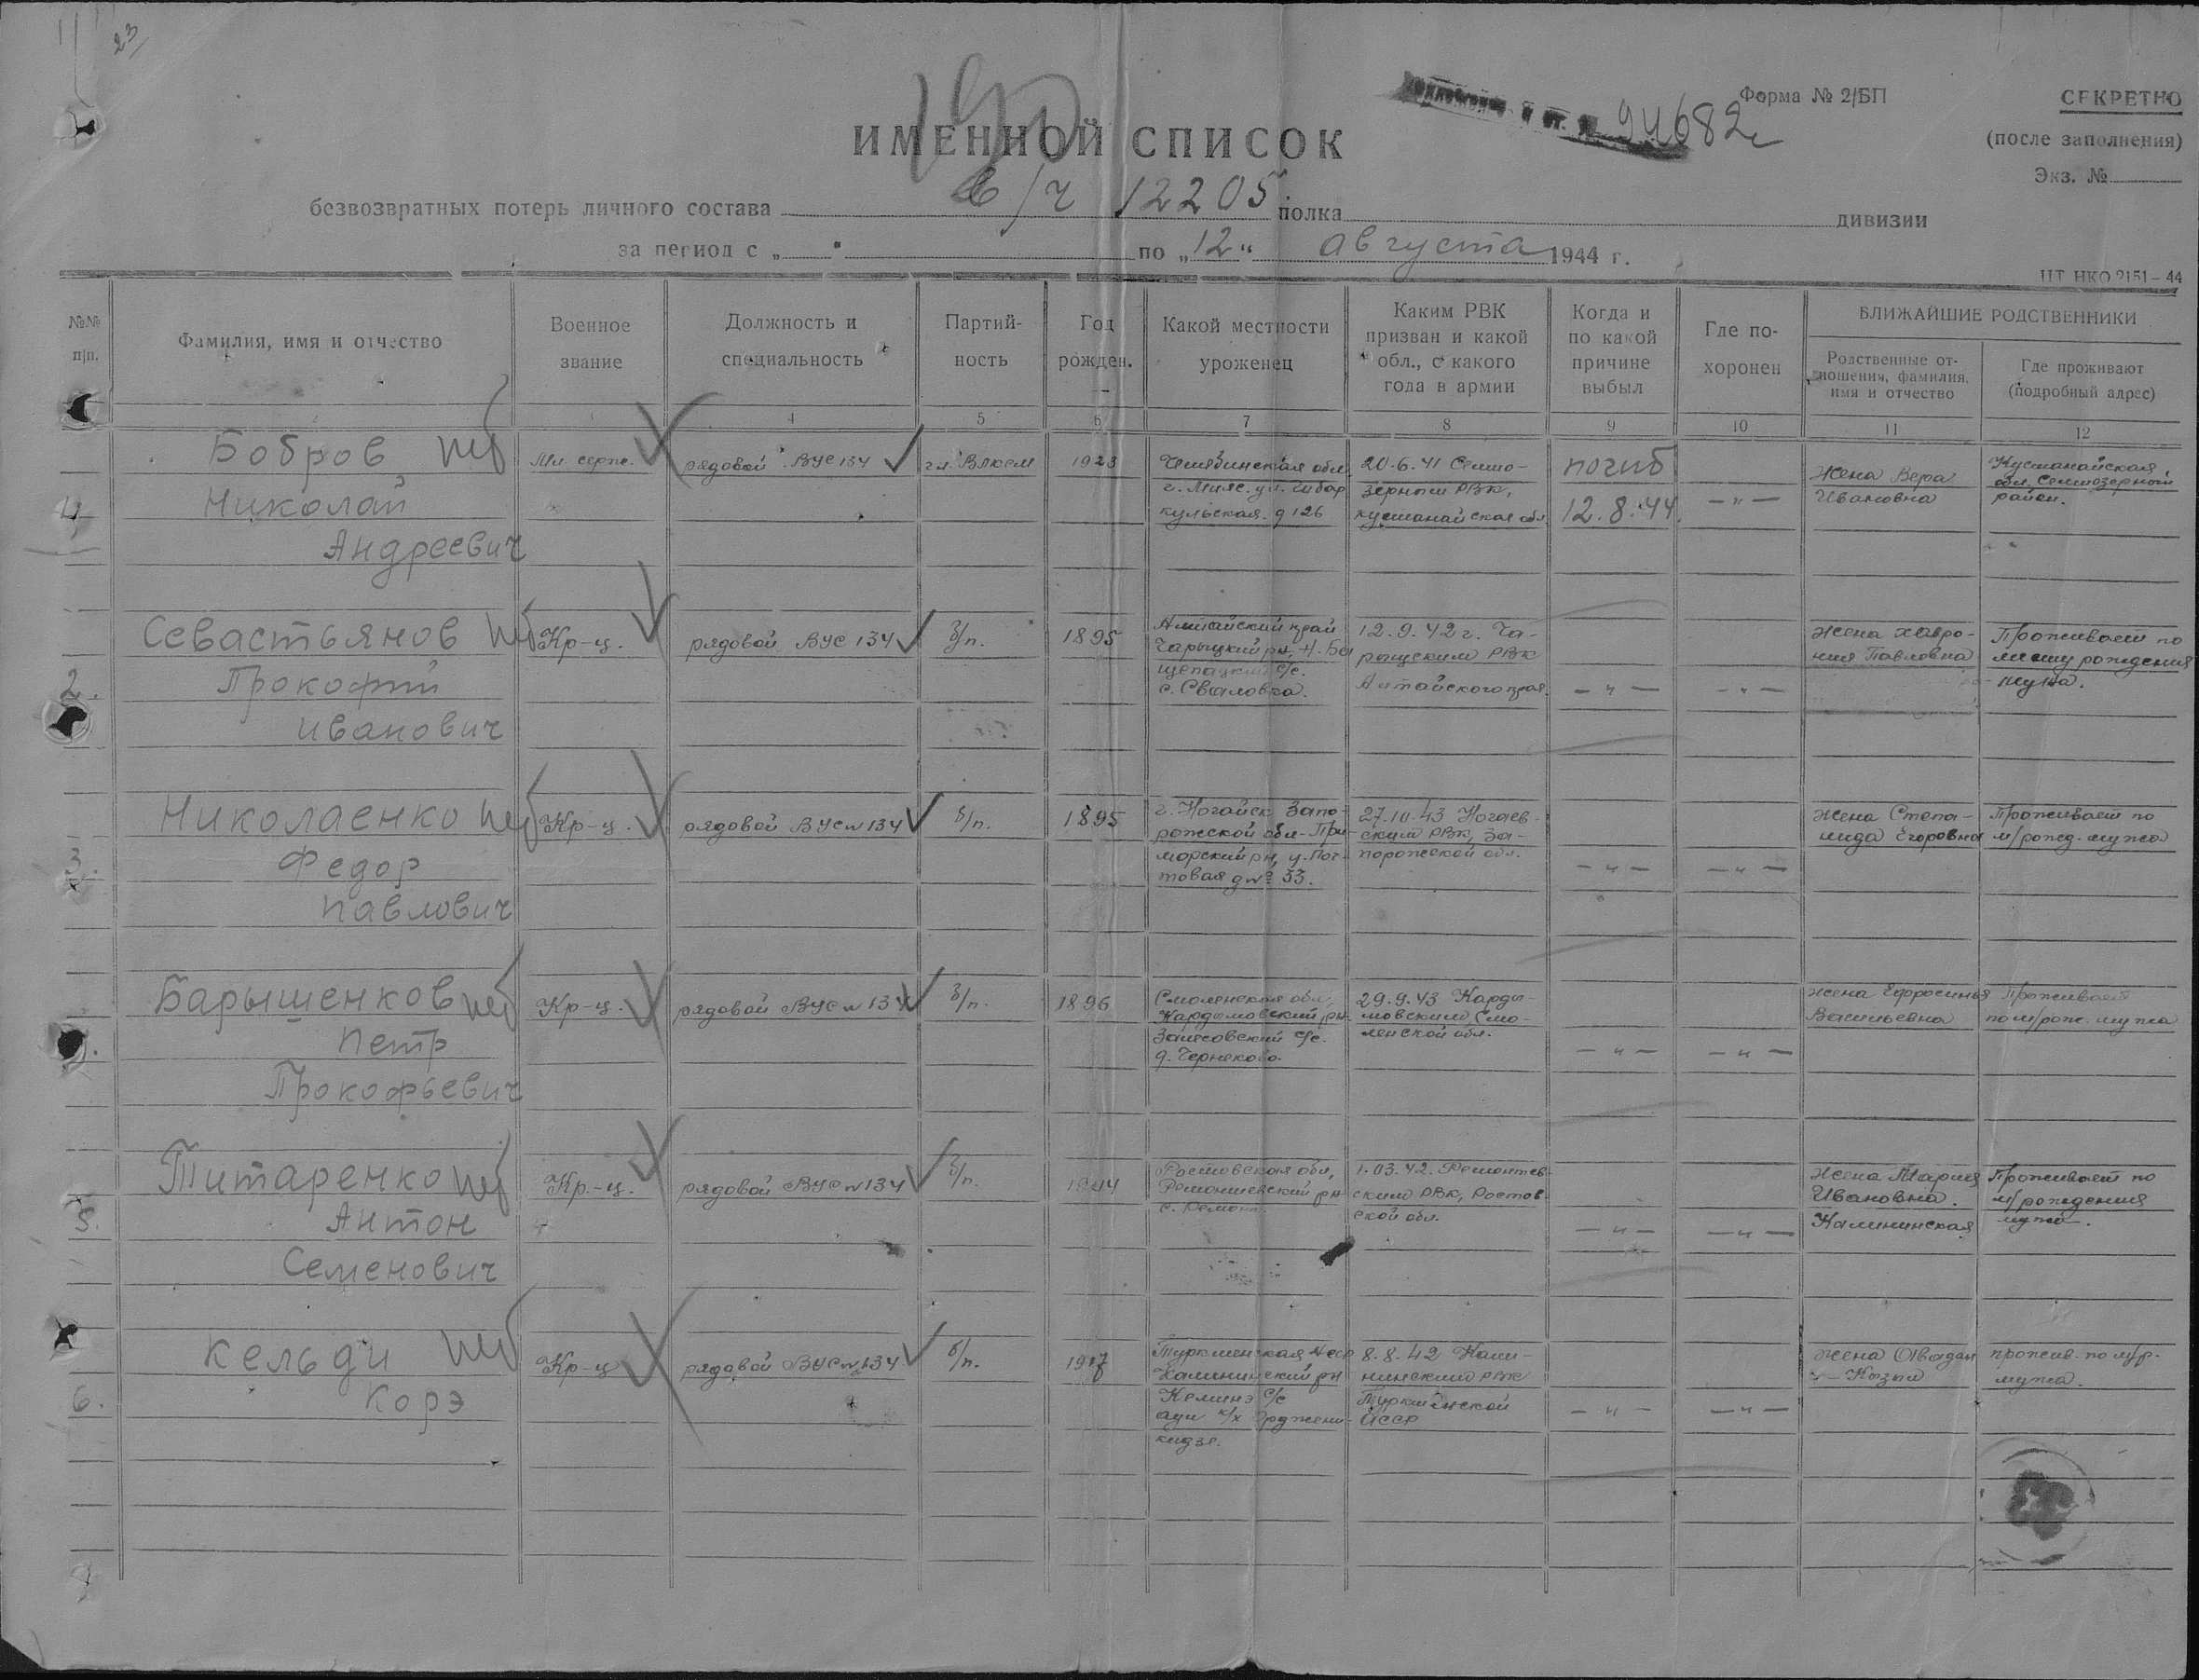 23
Форма № 2/БП
СЕКРЕТНО
94682с
ИМЕННОЙ СПИСОК
(после заполнения)
Экз. №
безвозвратных потерь личного состава в/ч 12205 полка дивизии
за период с „ " по „12" августа 1944 г.
ЦТ НКО 2151—44
№№ п/п.
Фамилия, имя и отчество
Военное звание
Должность и специальность
Партийность
Год рожден.
Какой местности уроженец
Каким РВК призван и какой обл., с какого года в армии
Когда и по какой причине выбыл
Где похоронен
БЛИЖАЙШИЕ РОДСТВЕННИКИ
Родственные отношения, фамилия, имя и отчество
Где проживают (подробный адрес)
2 4 5 6 7 8 9 10 11 12
Бобров
Николай
Андреевич
Мл. серж.
рядовой ВУС 134
чл. ВЛКСМ
1923
Челябинская обл.
г. Миас. ул. Чибар
кульская. д 126
20.6.41 Семио-
зерным РВК,
кустанайская обл.
погиб
12.8.44.
— " —
Жена Вера
Ивановна
Кустанайская
обл. Семиозерный
район.
2.
Севастьянов
Прокофий
Иванович
Кр-ц.
рядовой ВУС 134
б/п.
1895
Алтайский край
с/с.
12.9.42 г. Ча-
рышским РВК
Алтайского края.
— " —
— " —
Жена Хавро-
ния Павловна
Проживает по
месту рождения
мужа.
3.
Николаенко
Федор
Павлович
Кр-ц.
рядовой ВУС № 134
б/п.
1895
г. Ногайск Запо-
рожской обл. При-
морский рн, у. Поч-
товая д № 33.
27.10.43 Ногаев-
ским РВК, За-
порожской обл.
— " —
— " —
Жена Степа-
нида Егоровна
Проживает по
м/рожд. мужа
Барышенков
Петр
Прокофьевич
Кр-ц.
рядовой ВУС № 134
б/п.
1896
Смоленская обл.,
Кардымовский рн.
с/с.
29.9.43 Карды-
мовским Смо-
ленской обл.
— " —
— " —
Жена Ефросинья
Васильевна
Проживает
по м/рож. мужа
5.
Титаренко
Антон
Семенович
Кр-ц.
рядовой ВУС № 134
б/п.
Ростовская обл,
Ремонтненский рн
с. Ремонт.
1.03.42. Ремонтнев-
ским РВК, Ростов-
ской обл.
— " —
— " —
Жена Мария
Ивановна.
Калининская
Проживает по
м/рождения
мужа.
6.
Кельди
Корэ
Кр-ц
рядовой ВУС № 134
б/п.
Туркменская
Калининский рн
с/с
аул к/х Орджени-
кидзе.
8.8.42 Кали-
нинским РВК
Туркменской
ССР
— " —
— " —
Жена
прожив. по м/р.
мужа.